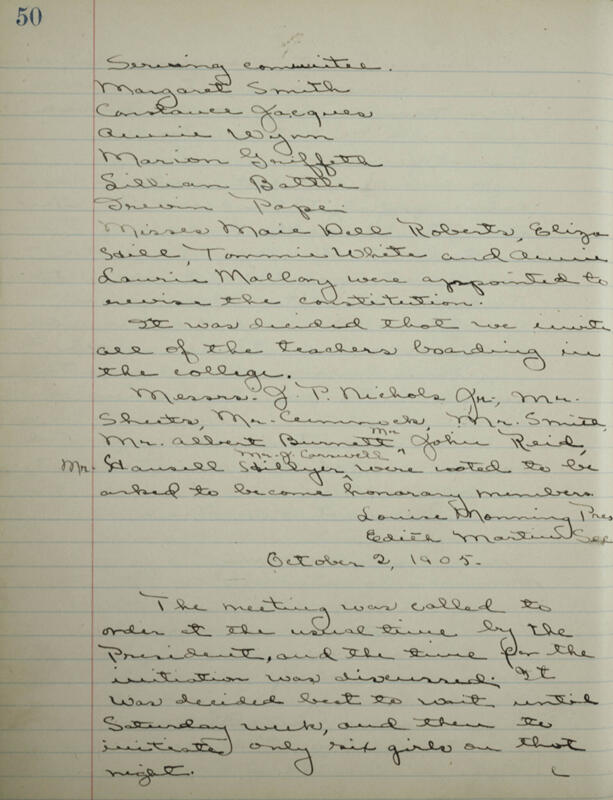 50
Serving committee.
Margaret Smith
Constance Jacques
Annie Wynn
Marion Griffeth
Lillian Battle
Pape
Misses Maie Dell Roberts, Eliza
Hill, Tommie White and Annie
Laurie Mallory were appointed to
revise the constitution.
It was decided that we invite
all of the teachers boarding in
the college.
Messrs. J. P. Nichols Jr., Mr.
Sheets, Mr. Cummock, Mr. Smith,
Mr. Albert Burnett, Mr. John Reid,
Mr. Hansell Hillyer, Mr. J. Carswell were voted to be
asked to become honorary members.
Louise Monning Pres
Edith Martin Sec
October 2, 1905.
The meeting was called to
order at the usual time by the
President, and the time for the
initiation was discussed. It
was decided best to wait until
Saturday week, and then to
initiate only six girls on that
night.